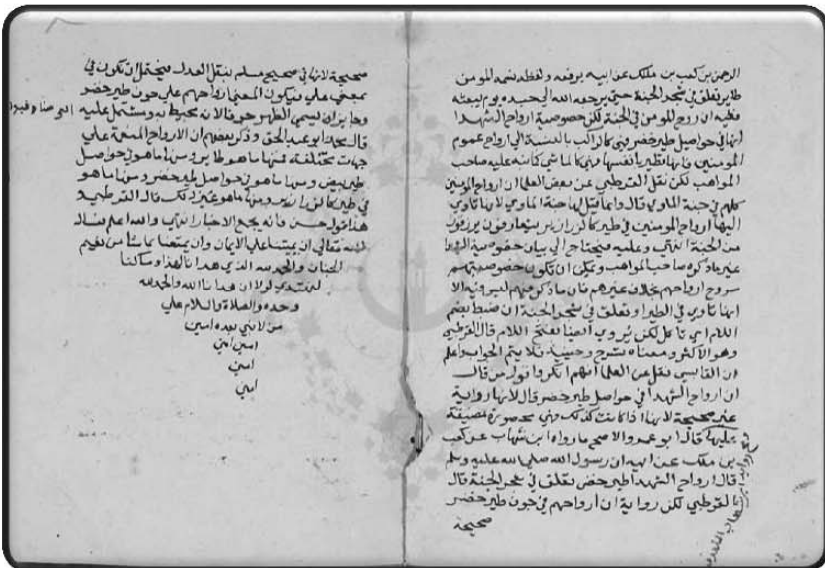 الرحمن بن كعب بن ملك عن ابيه يرفعه ولفظه نسمة المومن
طاير تعلق في شجر الجنة حتى يرجعه الله الى جسده يوم يبعثه
ففيه ان روح المومن في الجنة لكن خصوصية ارواح الشهدا
انها في حواصل طير خضر فهي كالراكب بالنسبة الى ارواح عموم
المومنين فانها تطير بانفسها فهي كالماشي كما نبه عليه صاحب
المواهب لكن نقل القرطبي عن بعض العلما ان ارواح المومنين
كلهم في جنة الماوي قال وانما قيل لها جنة الماوي لانها تاوي
اليها ارواح المومنين في طير كالزرازير يتعارفون يرزقون
من الجنة انتهى وعليه فيحتاج الى بيان خصوصية الشهدا
غير ما ذكره صاحب المواهب ويمكن ان تكون خصوصيتهم
سروح ارواحهم بخلاف غيرهم فان ما ذكر فيهم ليس فيه الا
انها تاوي في الطير او تعلق في شجر الجنة ان ضبط بضم
اللام اي تاكل لكن يروي ايضا بفتح اللام قال القرطبي
وهو الاكثر ومعناه تسرح وحينئذ فلا يتم الجواب واعلم
ان القابسي نقل عن العلما انهم انكروا قول من قال
ان ارواح الشهدا في حواصل طير خضر قال لانها رواية
غير صحيحة لانها اذا كانت كذلك فهي محصورة مضيقة
عليها قال ابو عمر والاصح ما رواه ابن شهاب عن كعب
بن ملك عن ابيه ان رسول الله صلى الله عليه وسلم
قال ارواح الشهدا طير خضر تعلق في شجر الجنة قال
القرطبي لكن رواية ان ارواحهم في جوف طير خضر
صحيحة
صحيحة لانها في صحيح مسلم بنقل العدل فيحتمل ان تكون في
بمعنى على فيكون المعنى ارواحهم على جوف طير خضر
وجايز ان يسمى الظهر جوفا لانه يحيط به ويشتمل عليه
قاله محمد ابو عبد الحق وذكر بعضهم ان الارواح المنعمة على
جهات مختلفة فمنها ما هو طاير ومنها ما هو في حواصل
طير بيض ومنها ما هو في حواصل طير خضر ومنها ما هو
في طير كالزرازير ومنها ما هو غير ذلك قال القرطبي
هذا قول حسن فانه يجمع الاخبار انتهى والله اعلم نسال
الله تعالى ان يميتنا على الايمان وان يمتعنا بما شا من نعيم
الجنان والحمد لله الذي هدانا لهذا وما كنا
لنهتدي لولا ان هدانا الله والحمد لله
وحده والصلاة والسلام على
من لا نبي بعده امين
امين امين
امين
امين